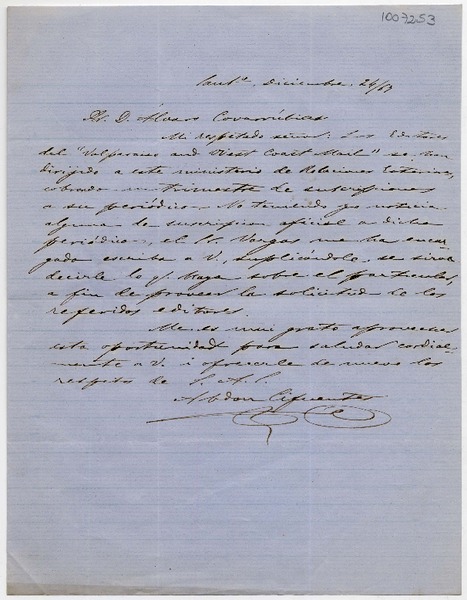 1007253
Sant.º, Diciembre 26/67
Sr. D. Álvaro Covarrúbias
Mi respetado señor: Los Editores
del "Valparaiso and West Coast Mail" se han
dirijido a este ministerio de Relaciones Esteriores,
cobrando de suscripciones
a su periódico. No teniendo yo noticia
alguna de suscripcion oficial a dicho
periódico, el Sr. Vargas me ha encar-
gado escriba a V., suplicándole se sirva
decirle lo q. haya sobre el particular,
a fin de proveer la solicitud de los
referidos editores.
Me es mui grato aprovechar
esta oportunidad para saludar cordial-
mente a V. i ofrecerle de nuevo los
respetos de S. A. S.
Abdon Cifuentes